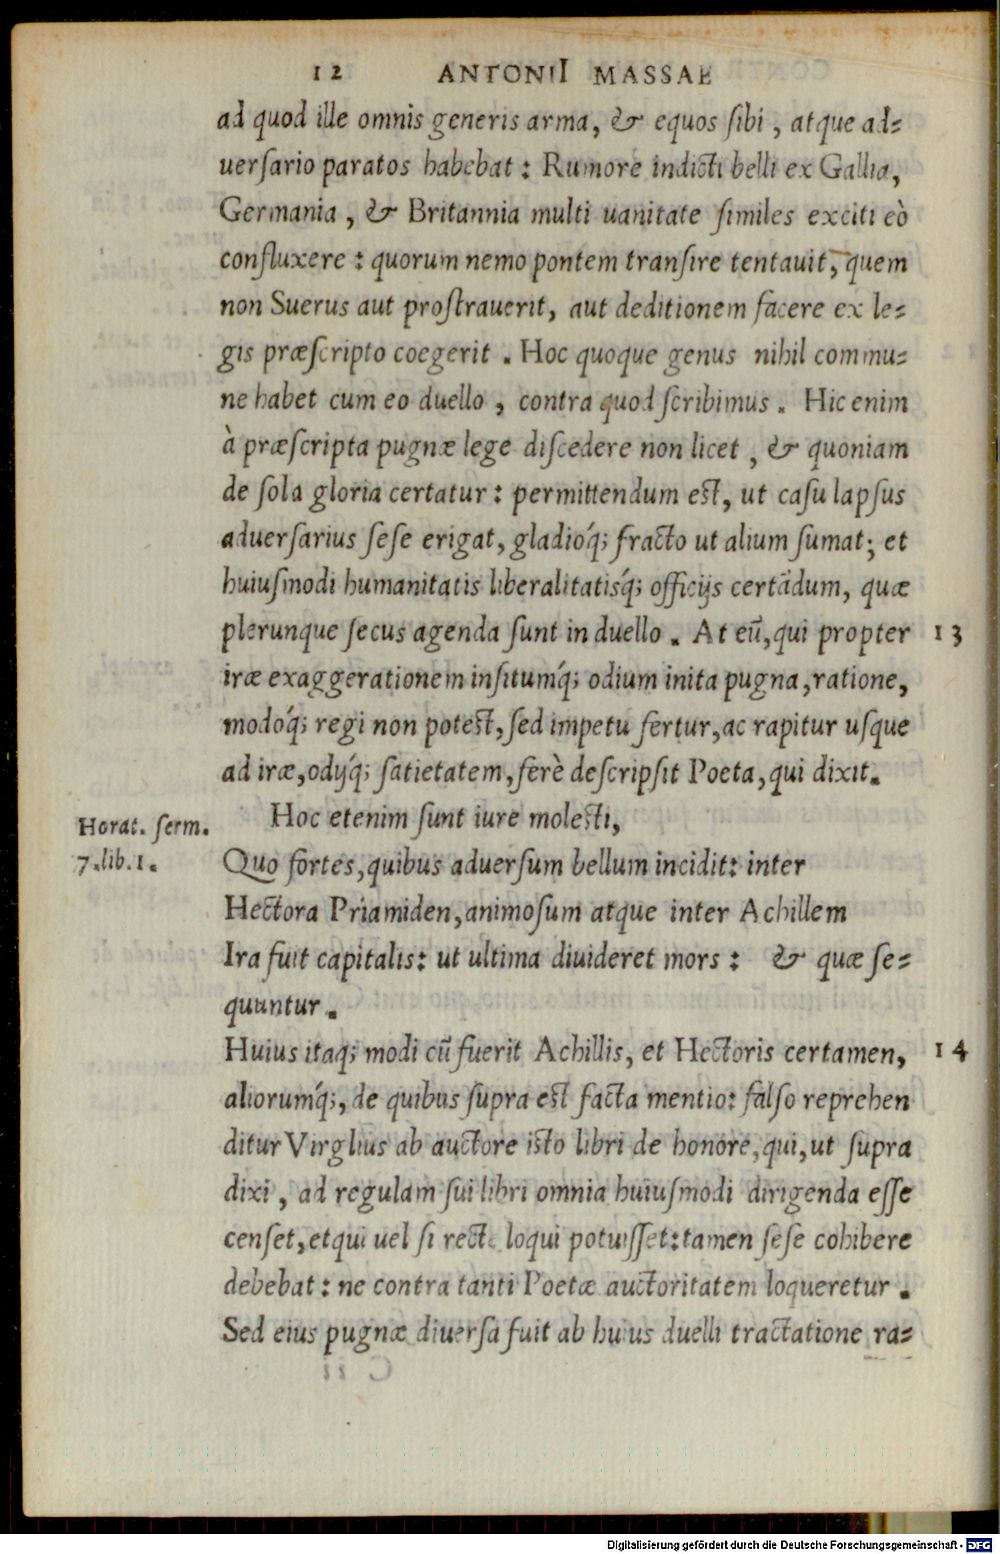 12 ANTONII MASSAE
ad quod ille omnis generis arma, & equos sibi, atque ad⸗
uersario paratos habebat: Rumore indicti belli ex Gallia,
Germania, & Britannia multi uanitate similes exciti eò
confluxere: quorum nemo pontem transire tentauit, quem
non Suerus aut prostrauerit, aut deditionem facere ex le⸗
gis præscripto coegerit. Hoc quoque genus nihil commu⸗
ne habet cum eo duello, contra quod scribimus. Hic enim
à præscripta pugnæ lege discedere non licet, & quoniam
de sola gloria certatur: permittendum est, ut casu lapsus
aduersarius sese erigat, gladióq; fracto ut alium sumat; et
huiusmodi humanitatis liberalitatisq́; officijs certãdum, quæ
plerunque secus agenda sunt in duello. At eũ, qui propter 13
iræ exaggerationem insitumq́; odium inita pugna, ratione,
modóq; regi non potest, sed impetu fertur, ac rapitur usque
ad iræ, odijq́; satietatem, ferè descripsit Poeta, qui dixit.
Hoc etenim sunt iure molesti,
Horat. serm.
7. lib. 1.
Quo fortes, quibus aduersum bellum incidit: inter
Hectora Priamiden, animosum atque inter Achillem
Ira fuit capitalis: ut ultima diuideret mors: & quæ se⸗
quuntur.
Huius itaq; modi cũ fuerit Achillis, et Hectoris certamen, 14
aliorumq́;, de quibus supra est facta mentio: falso reprehen
ditur Virglius ab auctore isto libri de honore, qui, ut supra
dixi, ad regulam sui libri omnia huiusmodi dirigenda esse
censet, et qui uel si recte loqui potuisset: tamen sese cohibere
debebat: ne contra tanti Poetæ auctoritatem loqueretur.
Sed eius pugnæ diuersa fuit ab huius duelli tractatione ra⸗
Digitalisierung gefördert durch die Deutsche Forschungsgemeinschaft - DFG